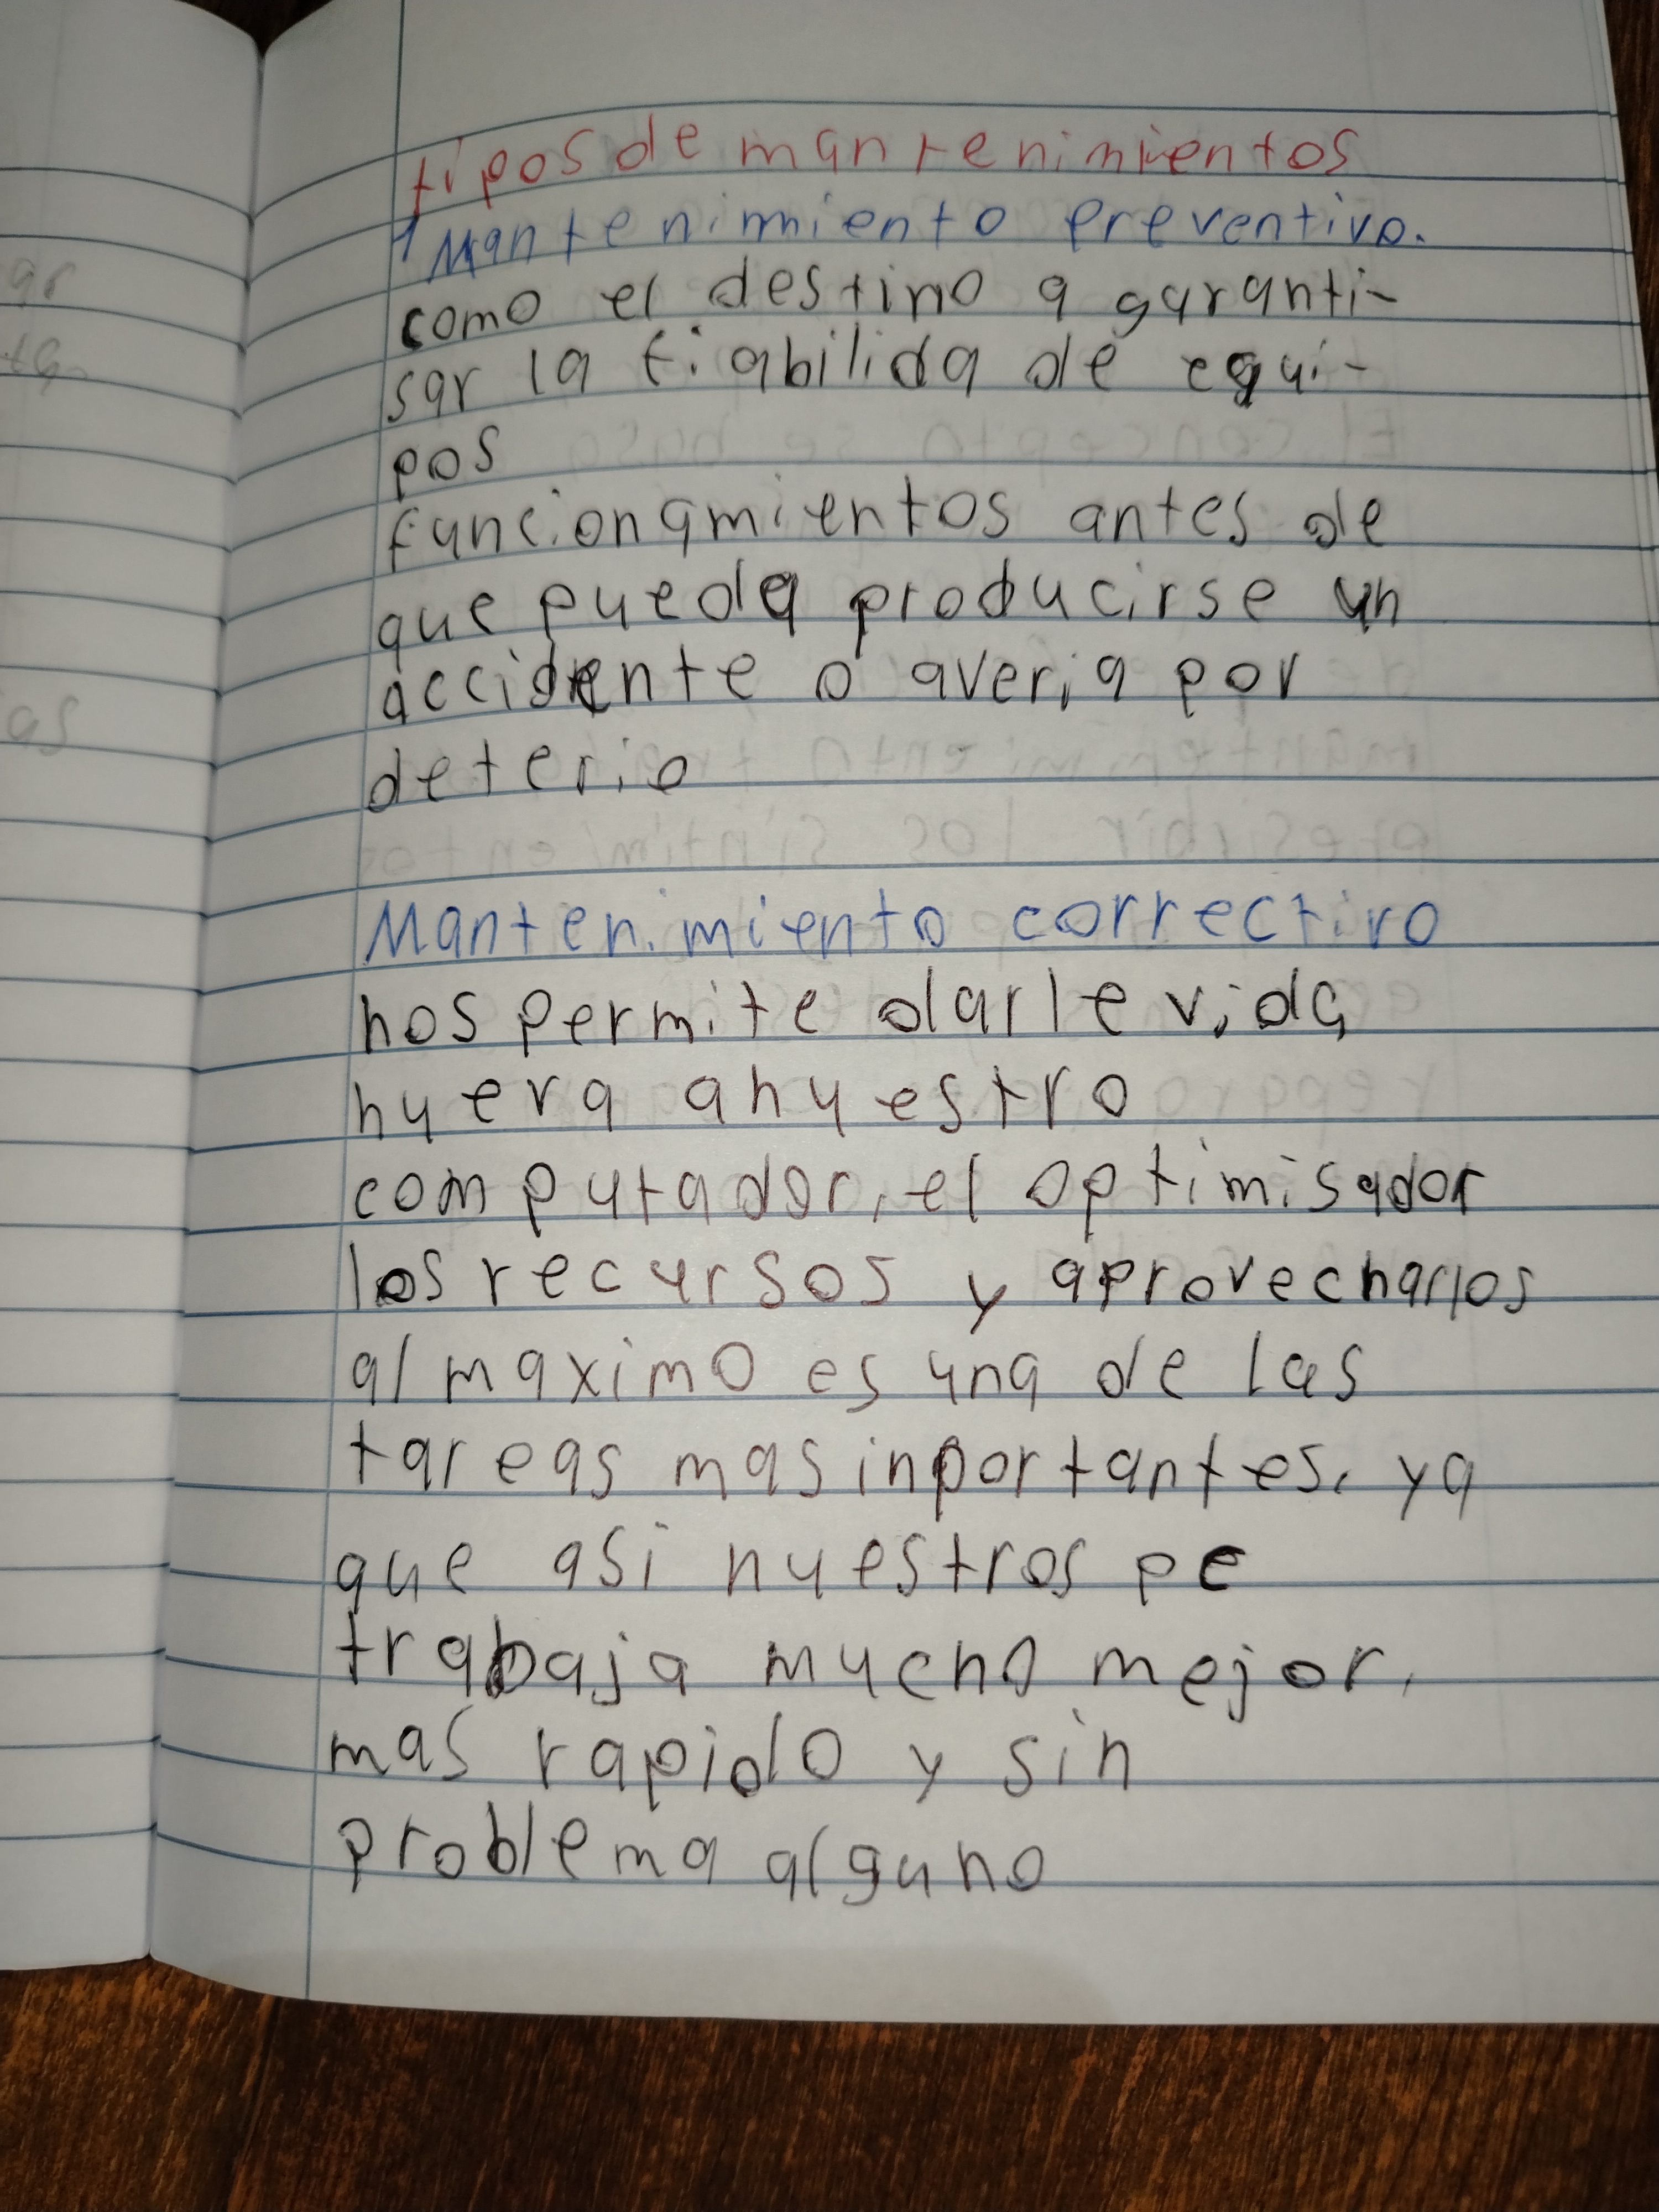 tipos de mantenimientos
1 Mantenimiento preventivo.
como el destino a garanti-
sar la fiabilida de equi-
pos
funcionamientos antes de
que pueda producirse un
accidente o averia por
deterio
Mantenimiento correctivo
nos permite darle vida
nueva anuestro
computador, el optimisador
los recursos y aprovecharlos
al maximo es una de las
tareas mas inportantes, ya
que asi nuestros pc
trabaja mucho mejor,
mas rapido y sin
problema alguno